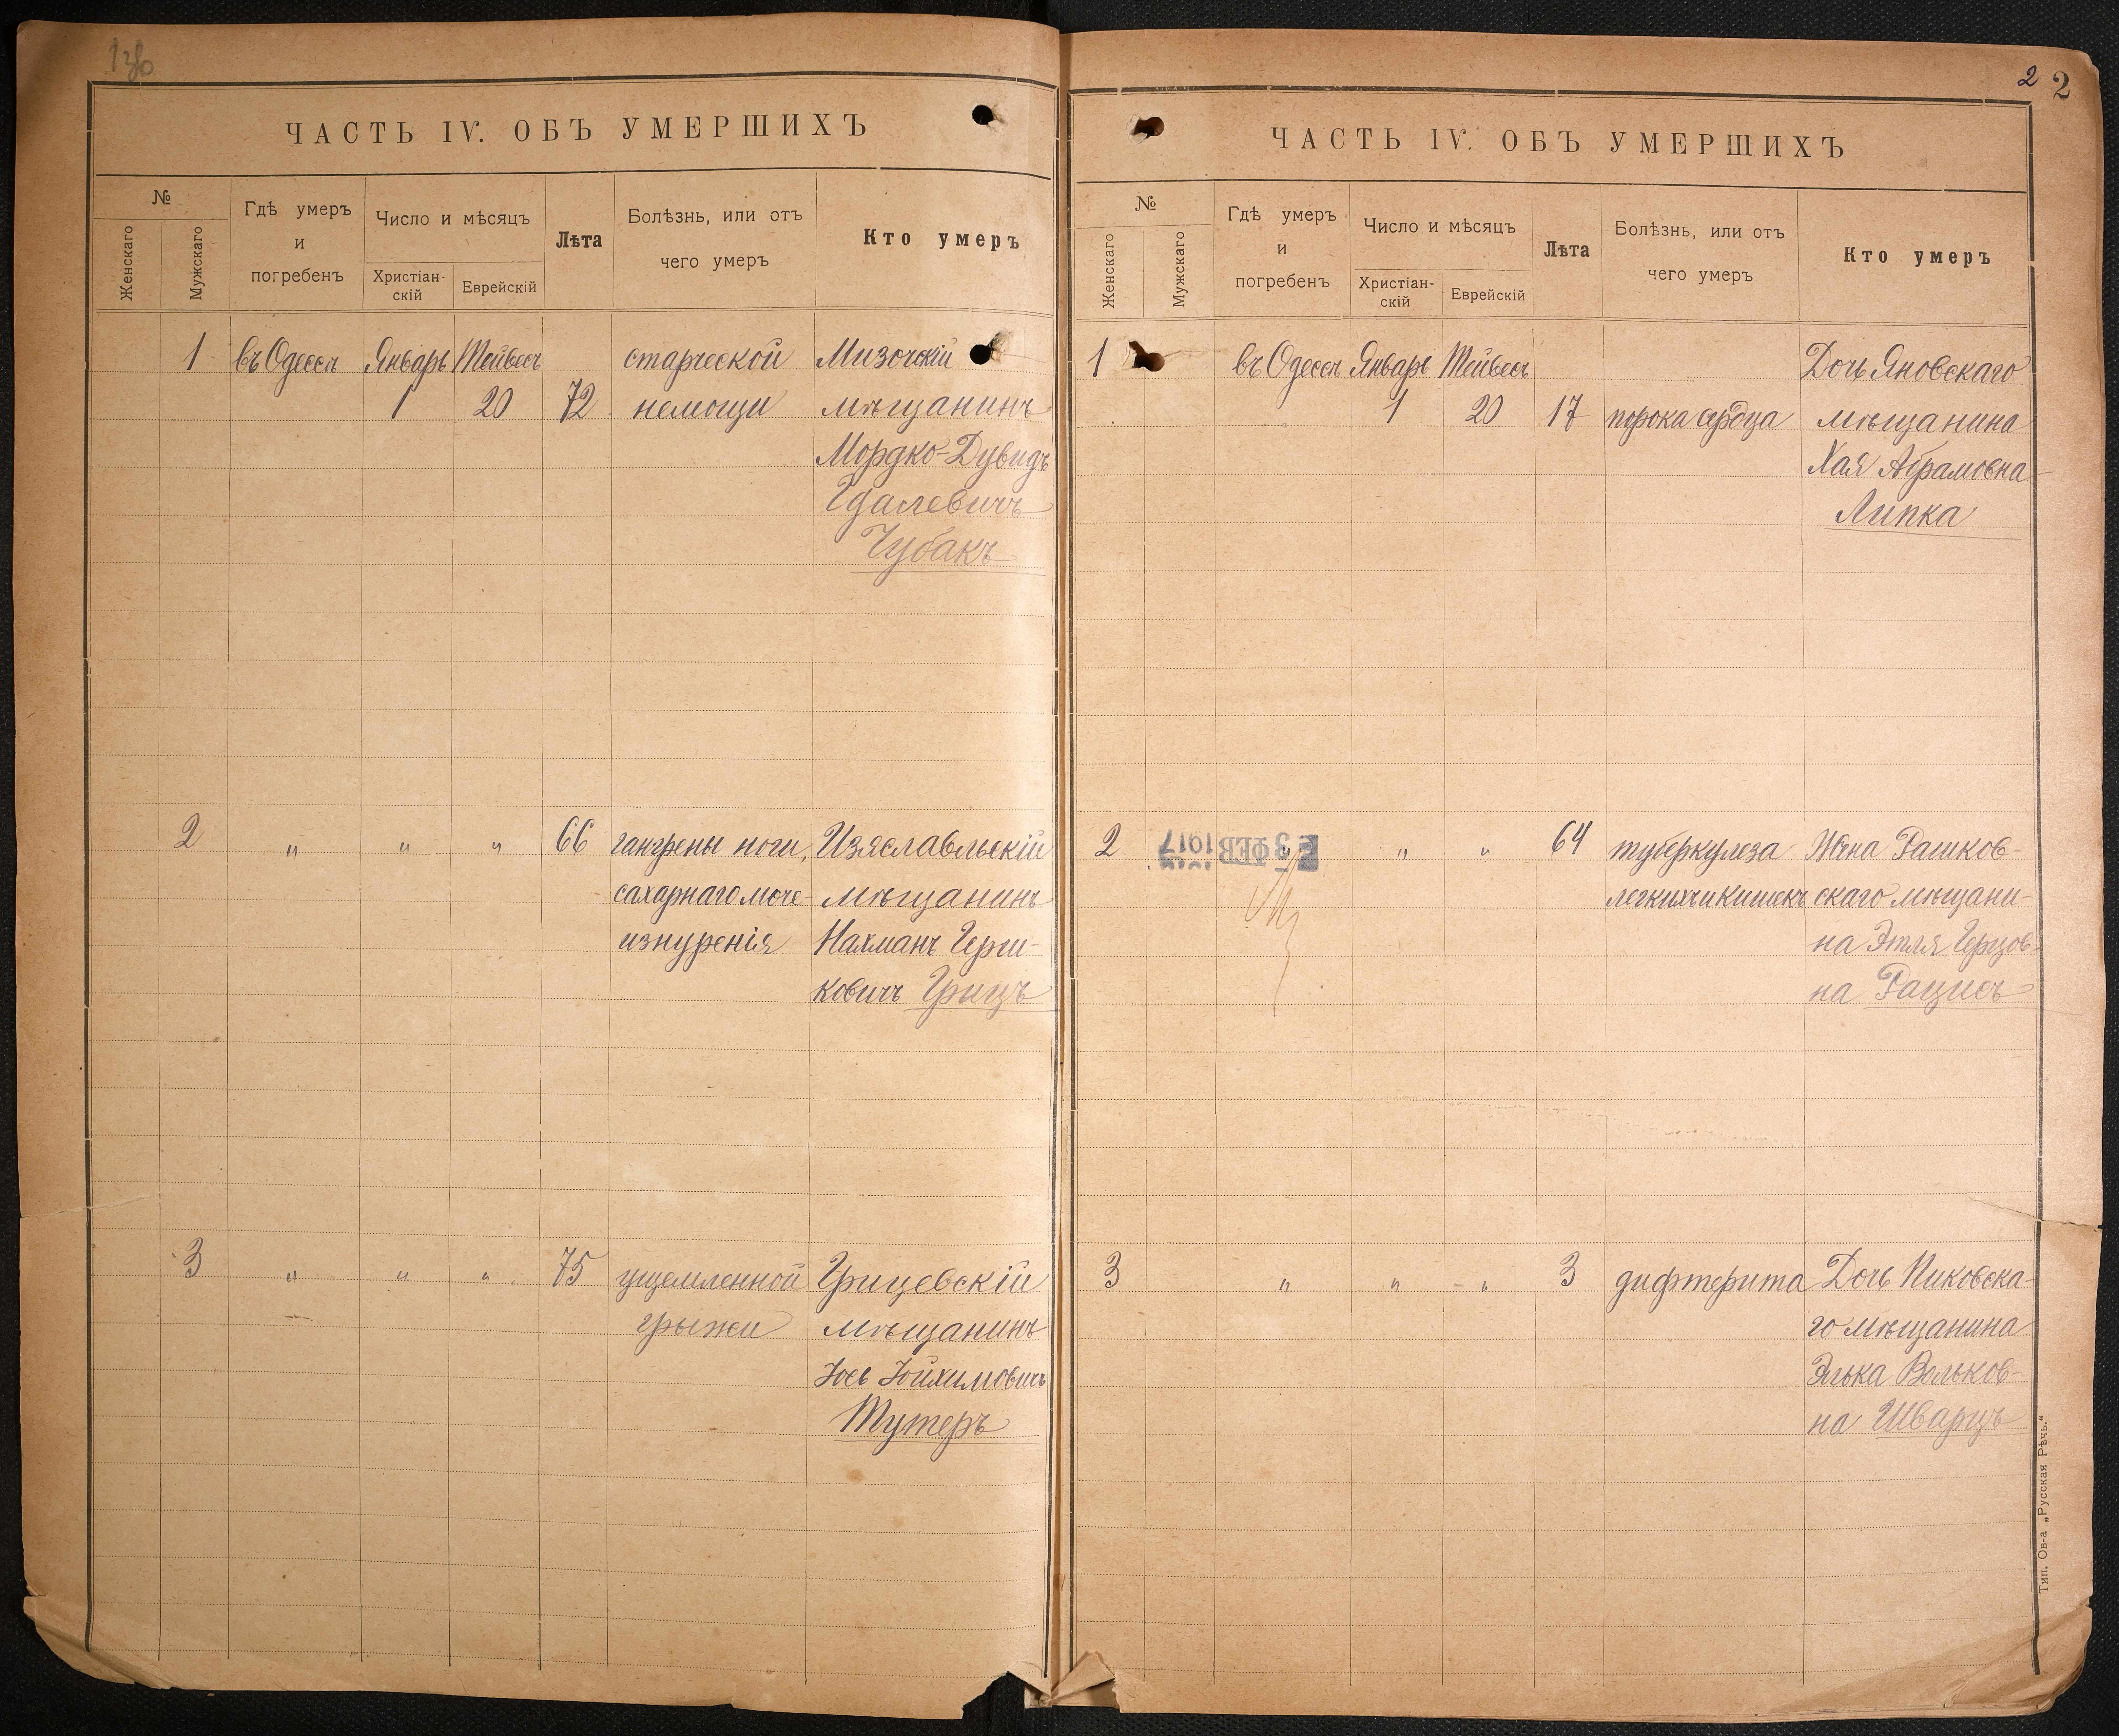 ЧАСТЬ IV. ОБЪ УМЕРШИХЪ
№
Женскаго
Мужскаго
Гдѣ умеръ
и
погребенъ
Число и мѣсяцъ
Христіан-
скій
Еврейскій
Лѣта
Болѣзнь, или отъ
чего умеръ
Кто умеръ
1 въ Одессѣ Январь Тейвесъ старческой Мизочскій
1 20 72 немощи мѣщанинъ
Мордко-Дувидъ
Гдалевичъ
Чубакъ
2 " " " 66 гангрены ноги, Изяславльскій
сахарнаго моче- мѣщанинъ
изнуренія Нахманъ Герш-
ковичъ Грицъ
3 " " " 75 ущемленной Грицевскій
грыжи мѣщанинъ
Іось Іойхимовичъ
Тутеръ
2 2
ЧАСТЬ IV. ОБЪ УМЕРШИХЪ
№
Женскаго
Мужскаго
Гдѣ умеръ
и
погребенъ
Число и мѣсяцъ
Христіан-
скій
Еврейскій
Лѣта
Болѣзнь, или отъ
чего умеръ
Кто умеръ
1 въ Одессѣ Январь Тейвесъ Дочь Яновскаго
1 20 17 порока сердца мѣщанина
Хая Абрамовна
Липка
2 3 ФЕВ 1917 " " 64 туберкулеза Жена Рашков-
легкихъ и кишекъ скаго мѣщани-
на Этля Герцов-
на Рацисъ
3 " " " 3 дифтерита Дочь Пиковска-
го мѣщанина
Элька Вольков-
на Шварцъ
Тип. Ов-а „Русская Рѣчь."